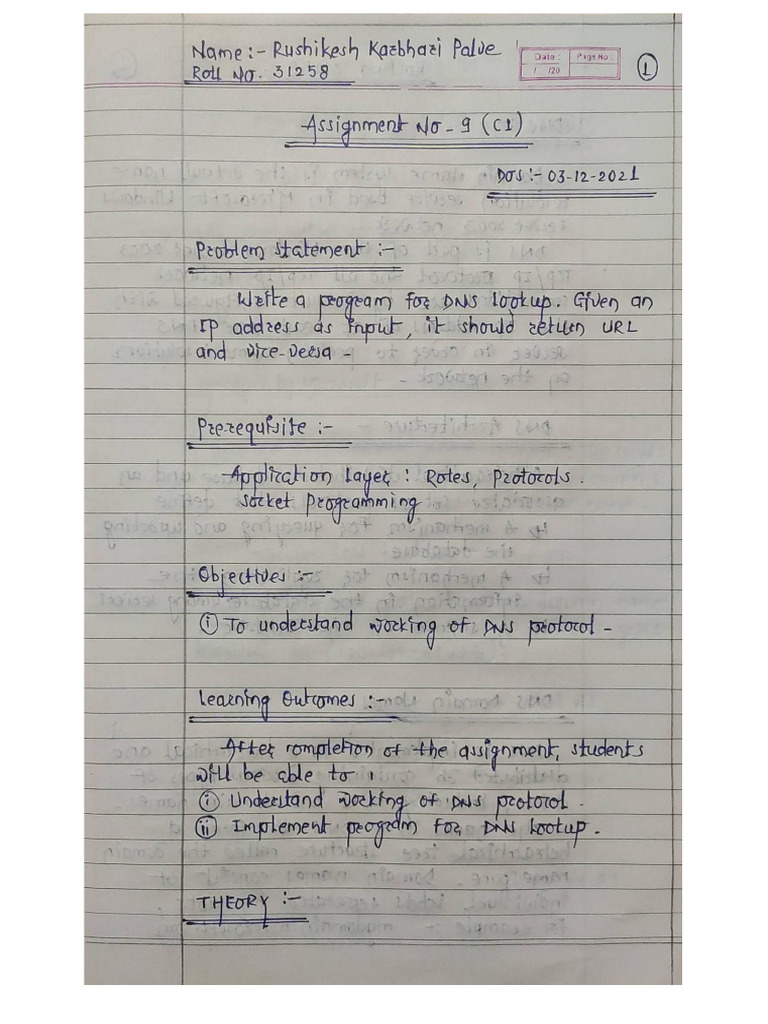 Name :- Rushikesh Karbhari Palve
Roll No. 31258
Date :
Page No :
/ /20
1
Assignment No - 9 (C1)
DOS :- 03-12-2021
Problem Statement :-
Write a program for DNS lookup. Given an
IP address as input, it should return URL
and vice-versa -
Pre-requisite :-
Application Layer : Roles, Protocols.
Socket Programming
Objectives :-
(i) To understand working of DNS protocol -
Learning Outcomes :-
After completion of the assignment, students
will be able to :
(i) Understand working of DNS protocol.
(ii) Implement program for DNS lookup.
THEORY :-